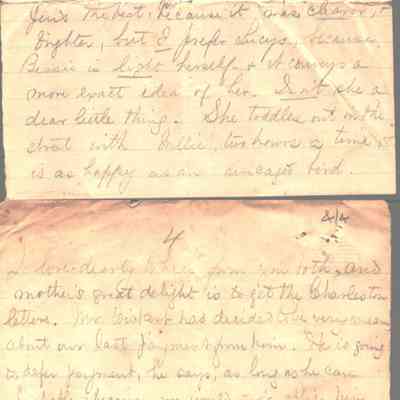 Jim's the best, because it was clearer, &
brighter, but I prefer Lucy's, because
Bessie is light herself & it conveys a
more exact idea of her. Isn't she a
dear little thing. She toddles out in the
street with Willie, two hours a time &
is as happy as an uncaged bird.
4/4
4
I love dearly to hear from you both, and
mother's great delight is to get the Charleston
letters. Mr. has decided to be very mean
about our last payment from him. He is going
to defer payment, he says, as long as he can